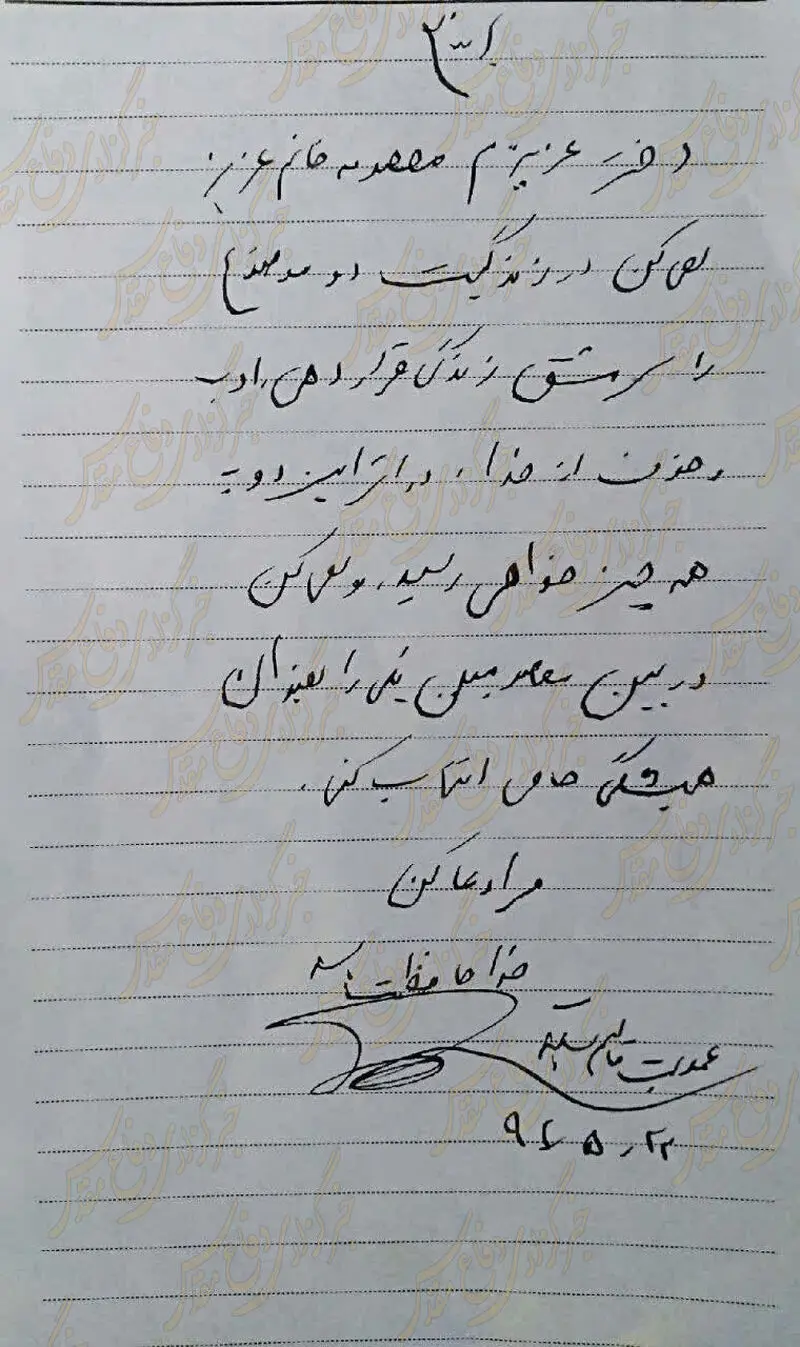 بسمه تعالی
دختر عزیزم معصومه خانم عزیز
سعی کن در زندگیت دو موضوع
را سرمشق زندگی قرار دهی، ادب
و خوف از خدا، در اثر این دو به
همه چیز خواهی رسید، و سعی کن
در بین معصومین یکی را بعنوان
همیشگی حامی انتخاب کنی.
مرا دعا کن
خدا حافظت باشد
عمویت قاسم سلیمانی
۹۶، ۵، ۲۲
خبرگزاری دفاع مقدس